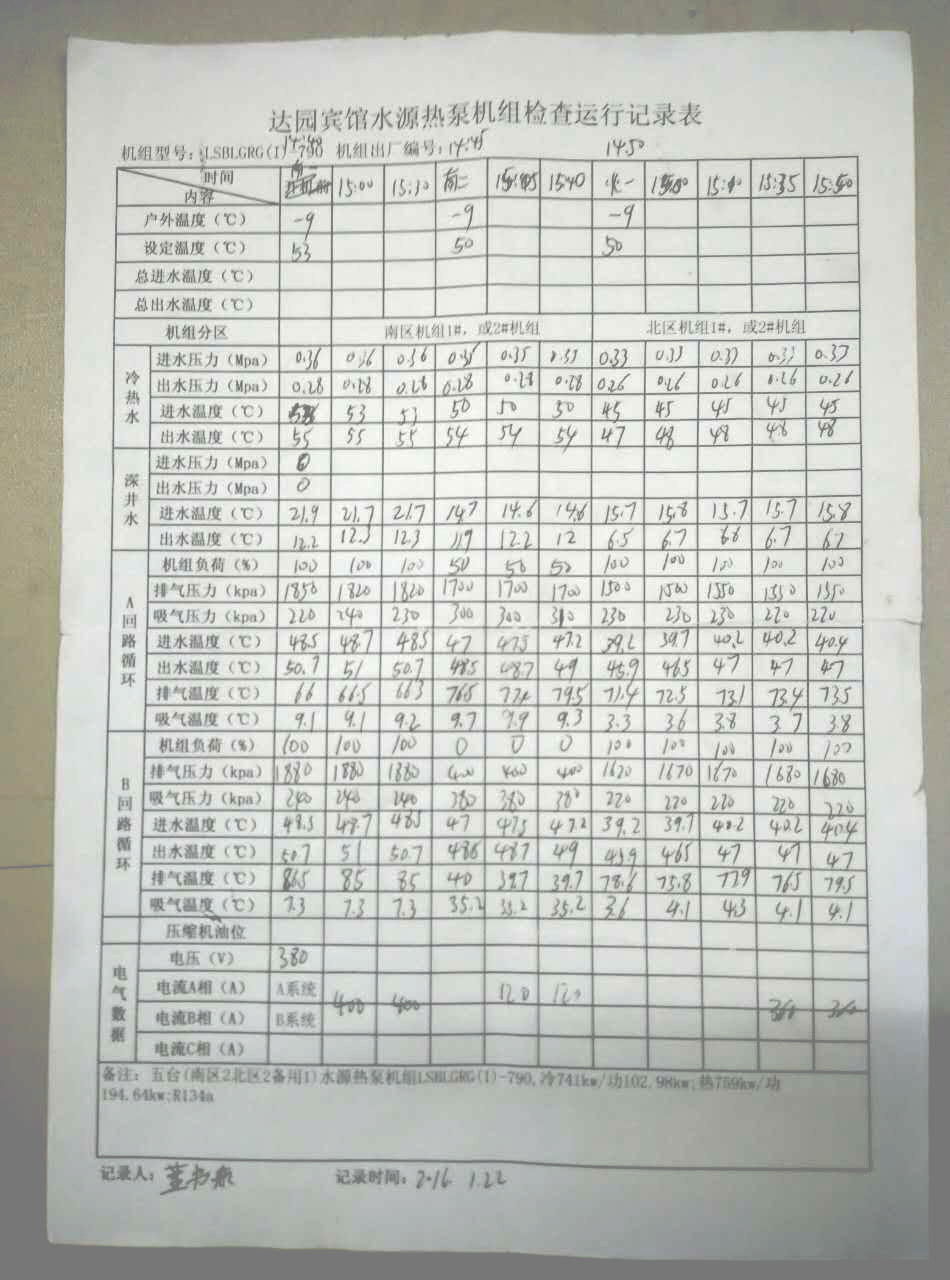 达园宾馆水源热泵机组检查运行记录表
机组型号：LSBLGRG(I)-790 机组出厂编号：14:45 14:50
时间
内容 15:00 15:30 南二 15:40 北一 15:35 15:50
户外温度（℃） -9 -9 -9
设定温度（℃） 53 50 50
总进水温度（℃）
总出水温度（℃）
机组分区 南区机组1#，或2#机组 北区机组1#，或2#机组
冷热水
进水压力（Mpa） 0.36 0.36 0.36 0.35 0.35 0.35 0.33 0.33 0.33 0.33 0.33
出水压力（Mpa） 0.28 0.28 0.28 0.28 0.28 0.28 0.26 0.26 0.26 0.26 0.26
进水温度（℃） 53 53 50 50 50 45 45 45 45 45
出水温度（℃） 55 55 55 54 54 54 47 48 48 48 48
深井水
进水压力（Mpa） 0
出水压力（Mpa） 0
进水温度（℃） 21.9 21.7 21.7 14.7 14.6 14.6 15.7 15.8 15.7 15.7 15.8
出水温度（℃） 12.2 12.3 12.3 11.9 12.2 12 6.5 6.7 6.6 6.7 6.7
A回路循环
机组负荷（%） 100 100 100 50 50 50 100 100 100 100 100
排气压力（kpa） 1850 1820 1820 1700 1700 1700 1500 1500 1550 1550 1550
吸气压力（kpa） 220 240 230 300 300 310 230 230 230 220 220
进水温度（℃） 48.5 48.7 48.5 47 47.5 47.2 39.2 39.7 40.2 40.2 40.4
出水温度（℃） 50.7 51 50.7 48.5 48.7 49 45.9 46.5 47 47 47
排气温度（℃） 66 66.5 66.3 76.5 77.4 79.5 71.4 72.5 73.1 73.4 73.5
吸气温度（℃） 9.1 9.1 9.2 9.7 9.9 9.3 3.3 3.6 3.8 3.7 3.8
B回路循环
机组负荷（%） 100 100 100 0 0 0 100 100 100 100 100
排气压力（kpa） 1880 1880 1880 400 400 400 1670 1670 1670 1680 1680
吸气压力（kpa） 240 240 240 380 380 380 220 220 220 220 220
进水温度（℃） 48.5 48.7 48.5 47 47.5 47.2 39.2 39.7 40.2 40.2 40.4
出水温度（℃） 50.7 51 50.7 48.6 48.7 49 45.9 46.5 47 47 47
排气温度（℃） 86.5 85 85 40 39.7 39.7 78.6 75.8 77.9 76.5 79.5
吸气温度（℃） 7.3 7.3 7.3 35.2 35.2 35.2 3.6 4.1 4.3 4.1 4.1
压缩机油位
电气数据
电压（V） 380
电流A相（A） A系统 400 400 120 120 360 360
电流B相（A） B系统
电流C相（A）
备注：五台(南区2北区2备用1)水源热泵机组LSBLGRG(I)-790,冷741kw/功102.98kw;热759kw/功
194.64kw;R134a
记录人： 记录时间：2.16 1.22